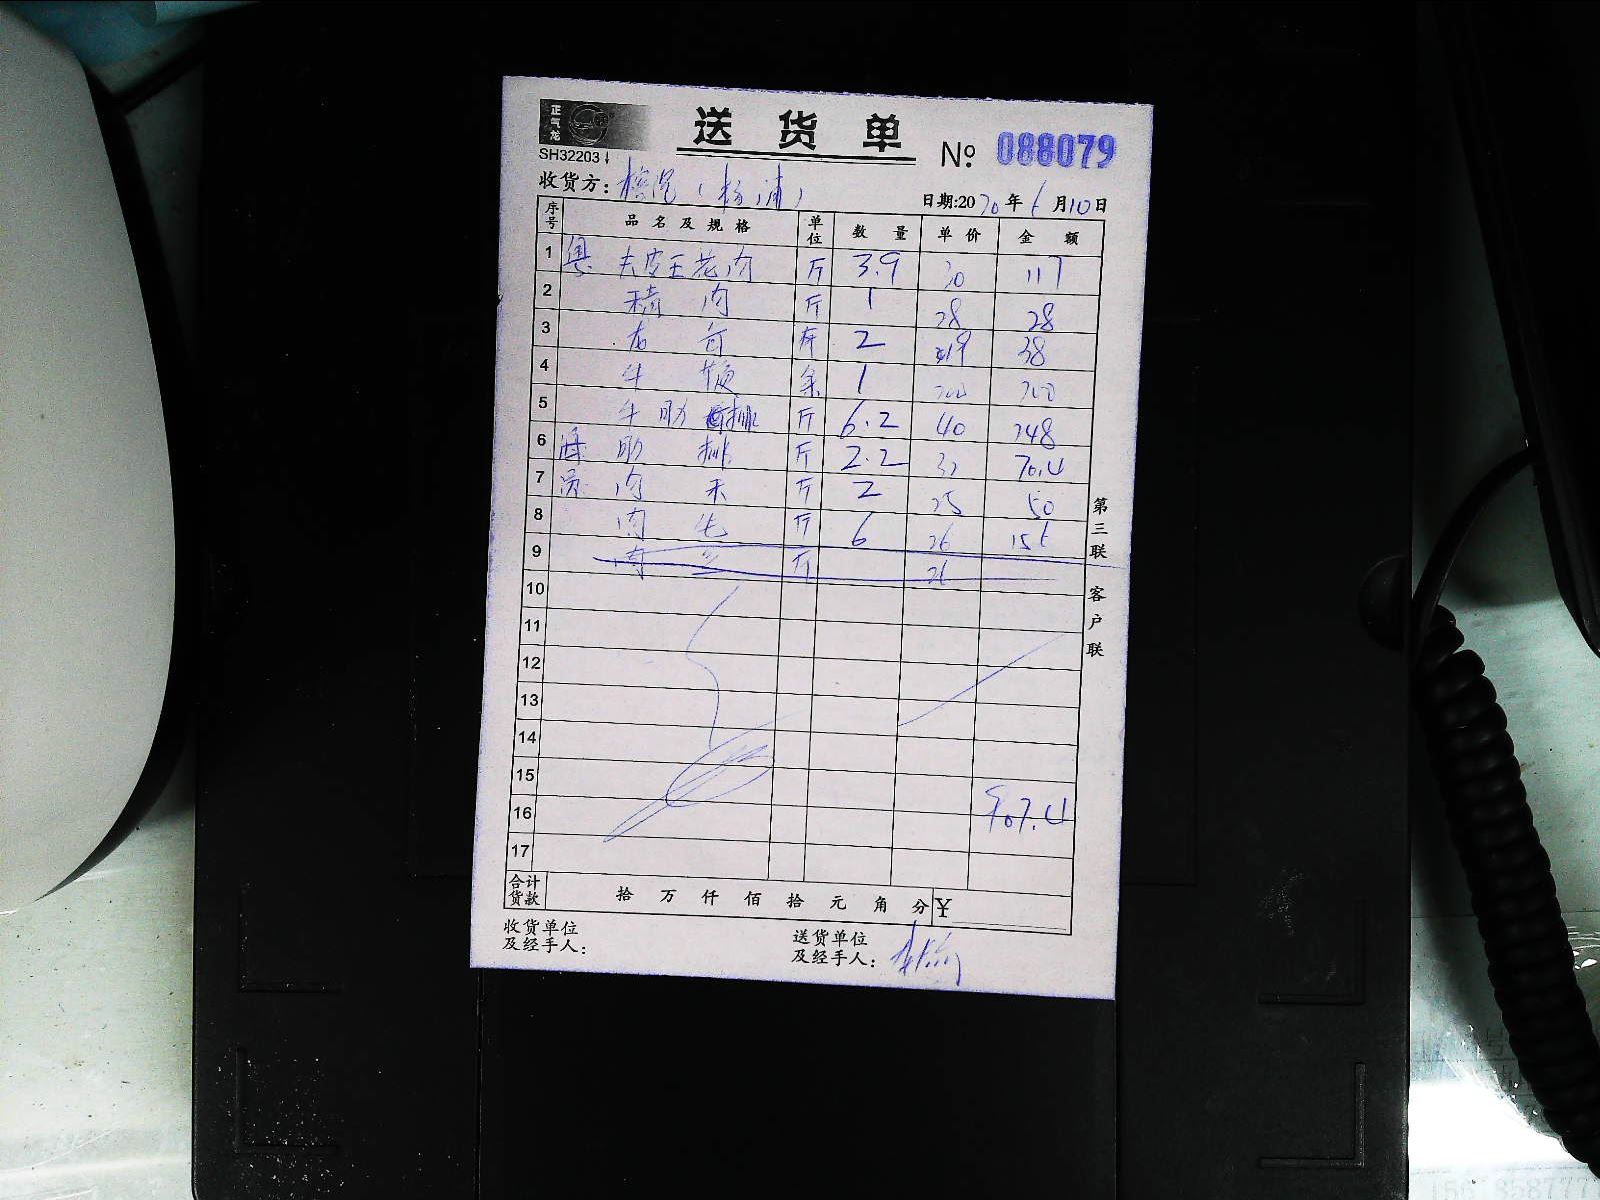 正气龙
送 货 单
SH32203
№ 088079
收货方:
日期:2020年6月10日
序号 品名及规格 单位 数量 单价 金额
1 粤 去皮五花肉 斤 3.9 30 117
2 精肉 斤 1 28 28
3 2 19 38
4 牛 条 1 200 200
5 牛肋排 斤 6.2 40 248
6 肋排 斤 2.2 32 70.4
7 肉末 斤 2 25 50
8 肉 斤 6 26 156
9 肉 斤 26
10
11
12
13
14
15
16 907.4
17
合计货款 拾 万 仟 佰 拾 元 角 分 ¥
收货单位及经手人:
送货单位及经手人:
第三联 客户联